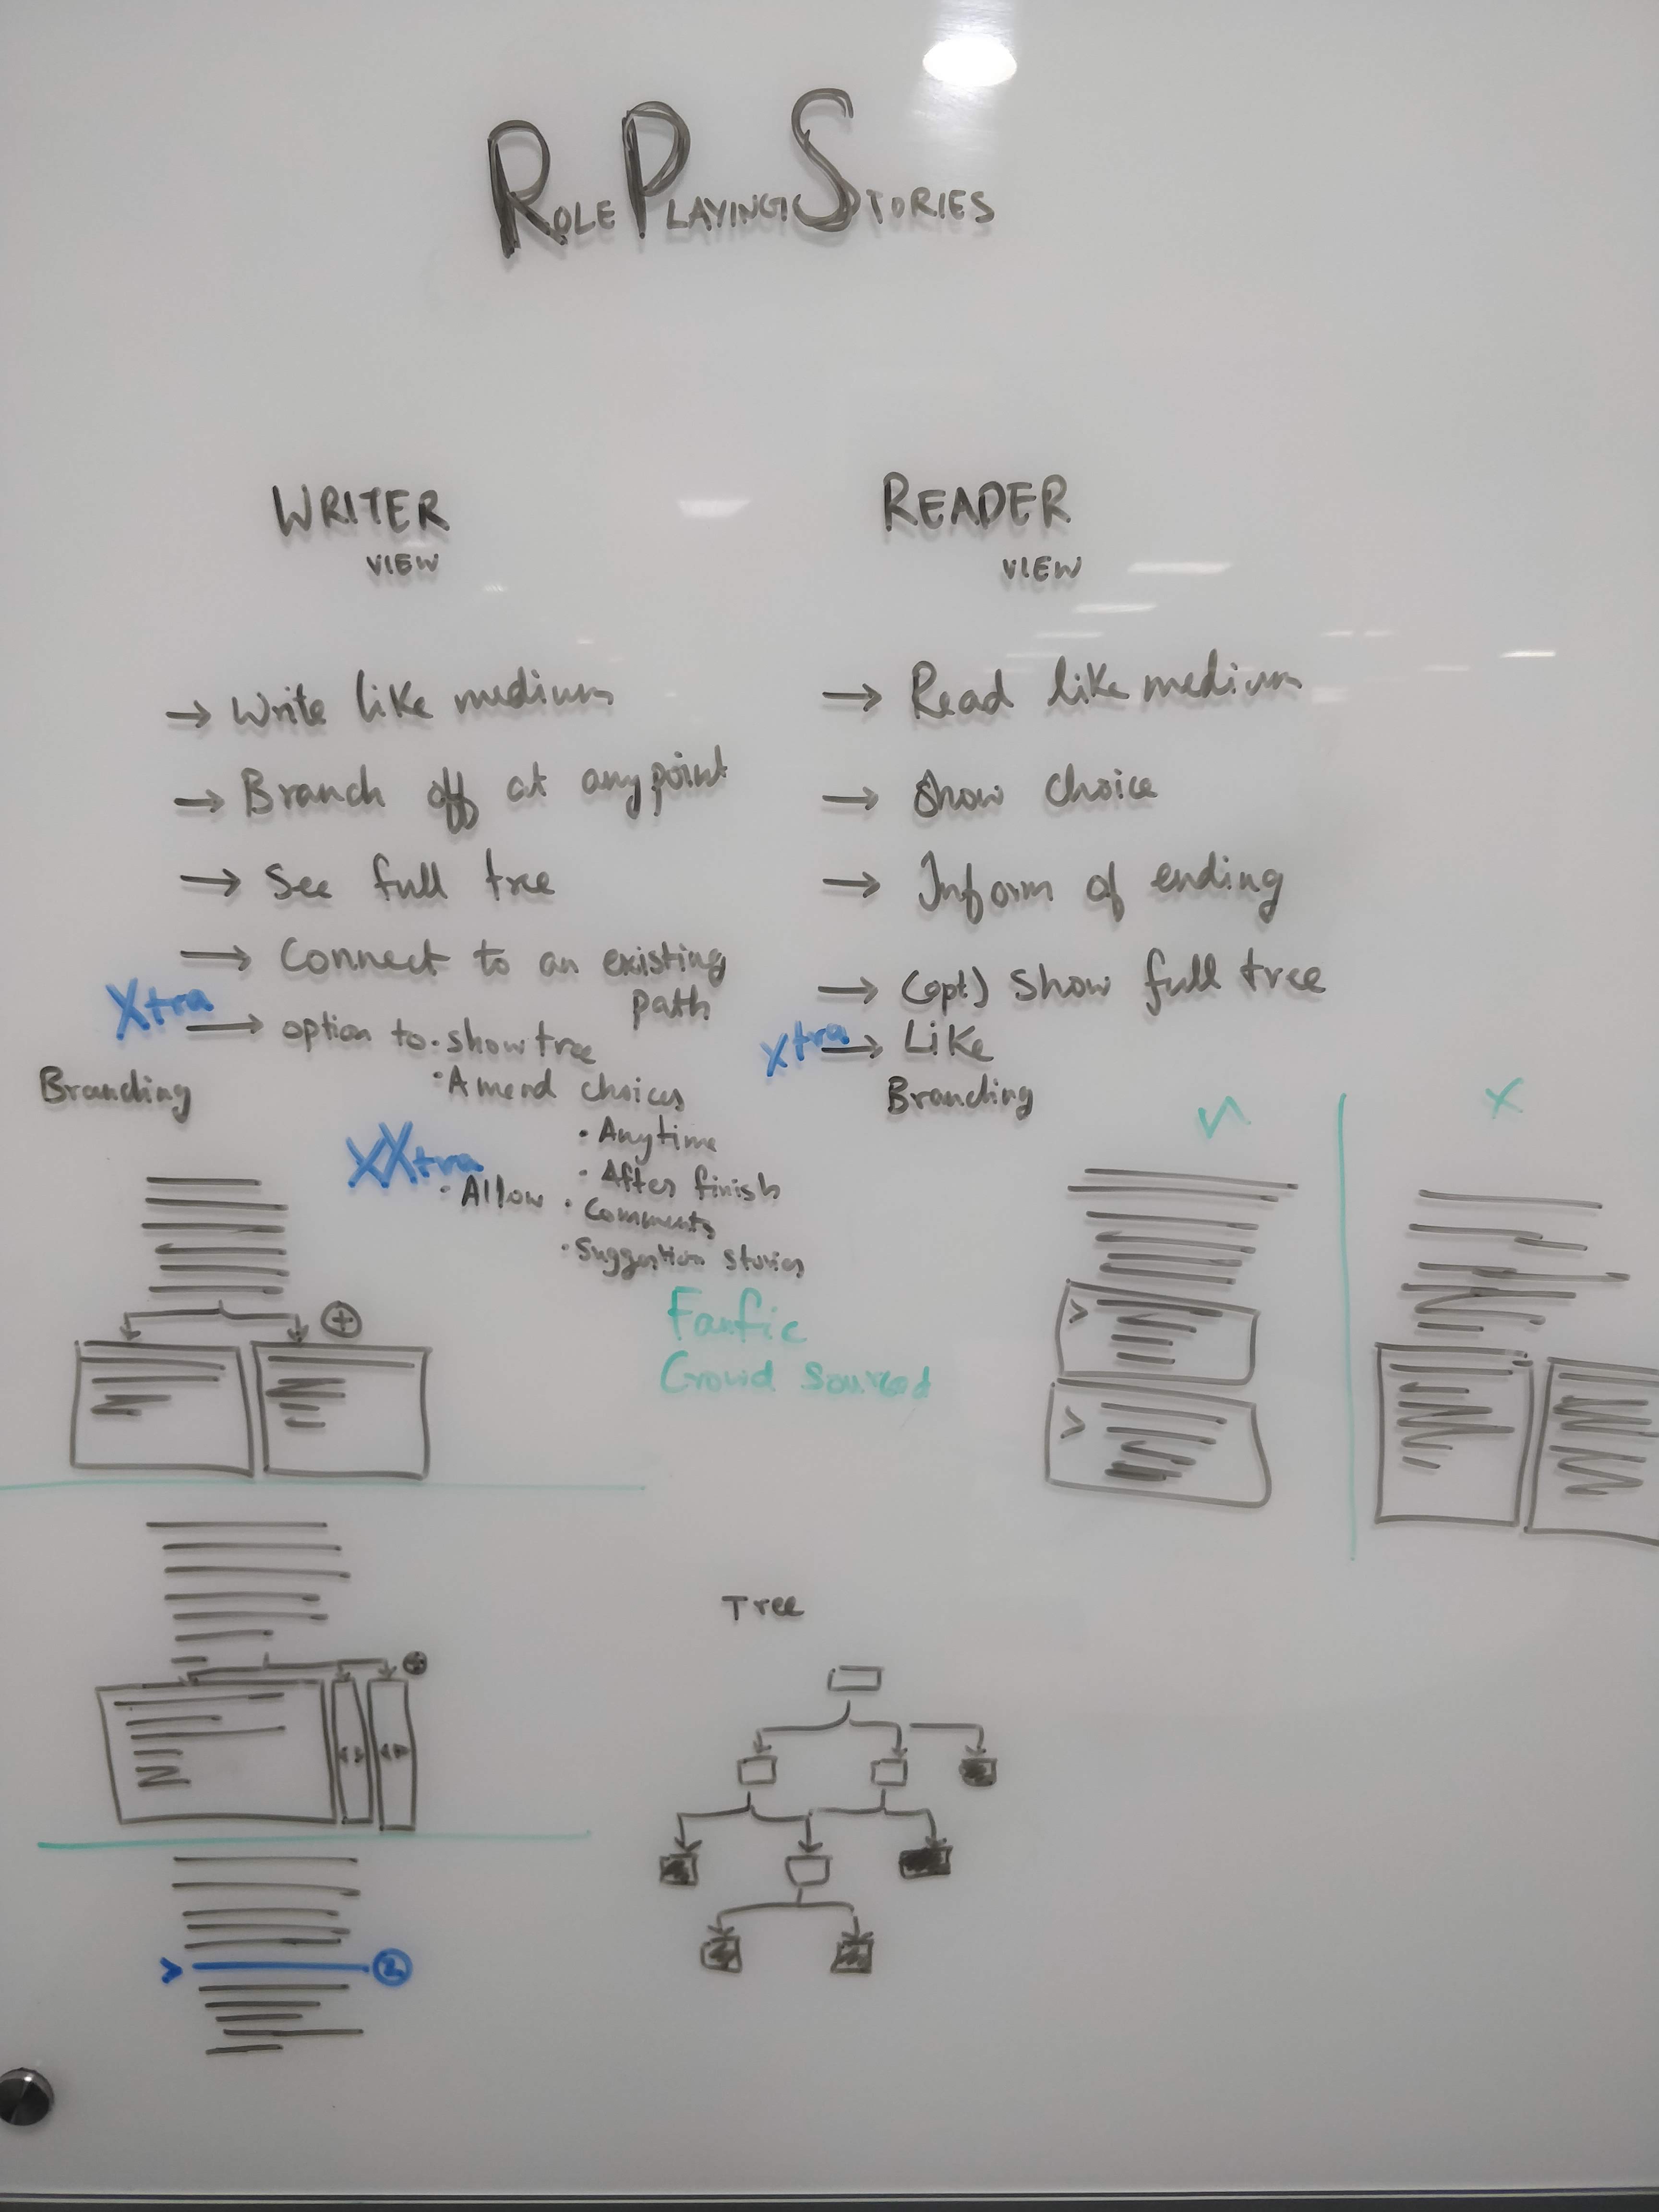 ROLE PLAYING STORIES
WRITER
VIEW
→ Write like medium
→ Branch off at any point
→ See full tree
→ Connect to an existing
path
Xtra → option to • show tree
• Amend choices
• Anytime
• After finish
XXtra • Allow • Comments
• Suggestion stories
Fanfic
Crowd Sourced
Branching
+
+
> 2
READER
VIEW
→ Read like medium
→ Show choice
→ Inform of ending
→ (opt) Show full tree
Xtra → Like
Branching
✓ X
>
>
Tree